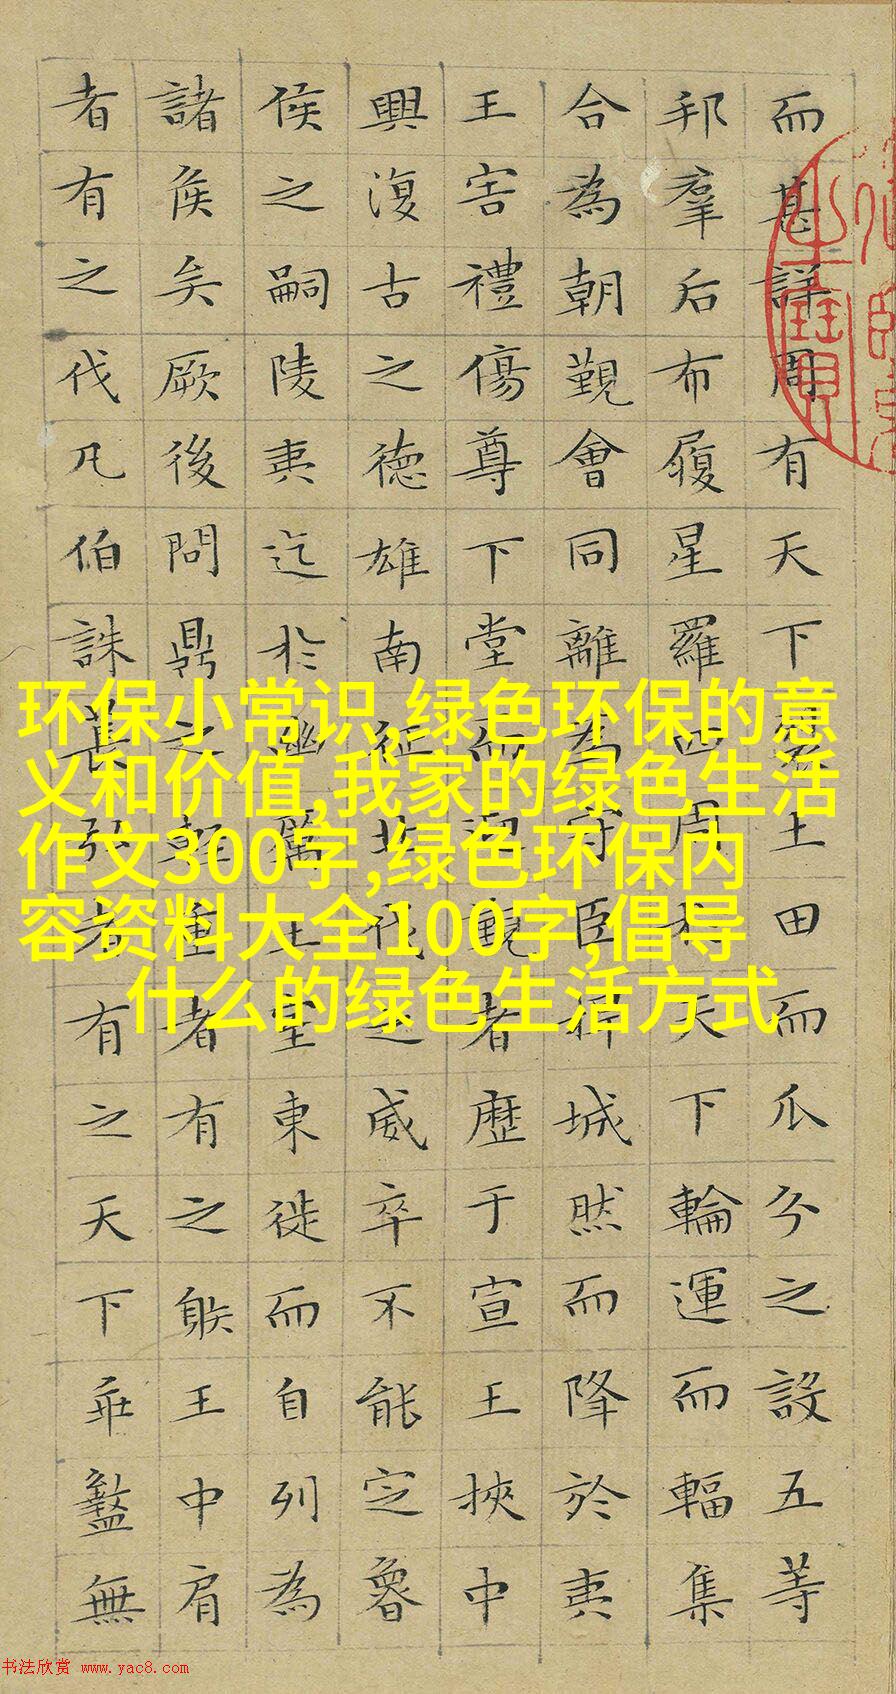 而甚詳周有天下裂土田而瓜分之設五等
邦羣后布履星羅四周於天下輪運而輻集
合為朝覲會同離為守臣扞城然而降於夷
王害禮傷尊下堂而迎覲者歷于宣王挾中
興復古之德雄南征北伐之威卒不能定魯
侯之嗣陵夷迄於幽厲王室東徙而自列為
諸侯矣厥後問鼎之輕重者有之射王中肩
者有之伐凡伯誅萇弘者有之天下乖盭無
环保小常识,绿色环保的意
义和价值,我家的绿色生活
作文300字,绿色环保内
容资料大全100字,倡导
什么的绿色生活方式
书法欣赏 www.yac8.com